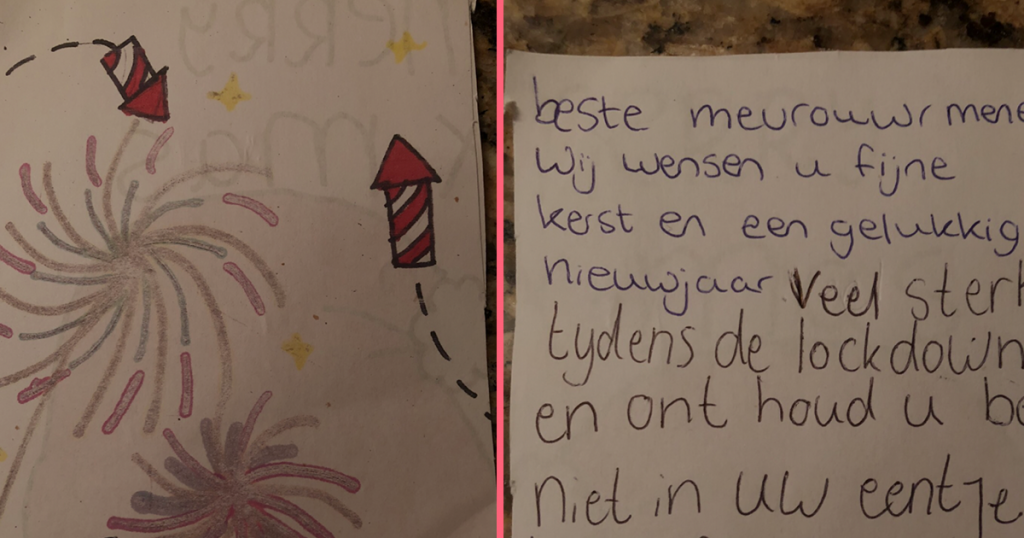 Merry
beste mevrouw/mene
wij wensen u fijne
kerst en een gelukkig
nieuwjaar veel sterk
tydens de lockdown
en ont houd u be
niet in uw eentje